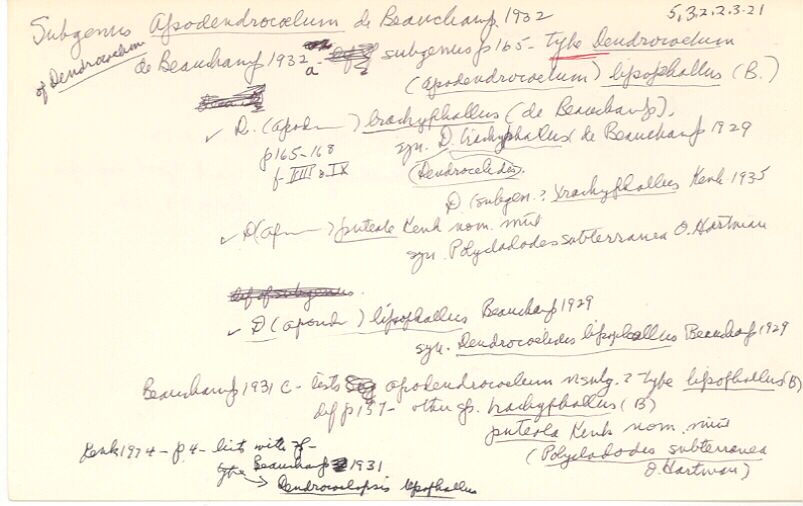 5,3.2.2.3-21
Subgenus Apodendrocoelum de Beauchamp. 1932
of Dendrocoelum
de Beauchamp 1932 a - subgenus p165 - type Dendrocoelum
(apodendrocoelum) lipophallus (B.)
✓ D. (apod— ) brachyphallus (de Beauchamp).
p165-168 syn. D. brachyphallus de Beauchamp 1929
f- VIII & IX (Dendrocelides).
D (subgen. ? brachyphallus Kenk 1935
✓ D(ap— ) puteale Kenk nom. mut
syn. Polycladodes subterranea O. Hartman
def of subgenus.
✓ D (apond— ) lipophallus Beauchamp 1929
syn. Dendrocoelides lipophallus Beauchamp 1929
Beauchamp 1931 c - lists apodendrocoelum n subg. ? type lipophallus (B)
def p157 - other sp. brachyphallus (B)
puteola Kenk nom. mut
(Polycladodes subterranea
O. Hartman)
Kenk 1974 - p 4 - list with sp -
type Beauchamp 1931
→ Dendrocoelopsis lipophallus